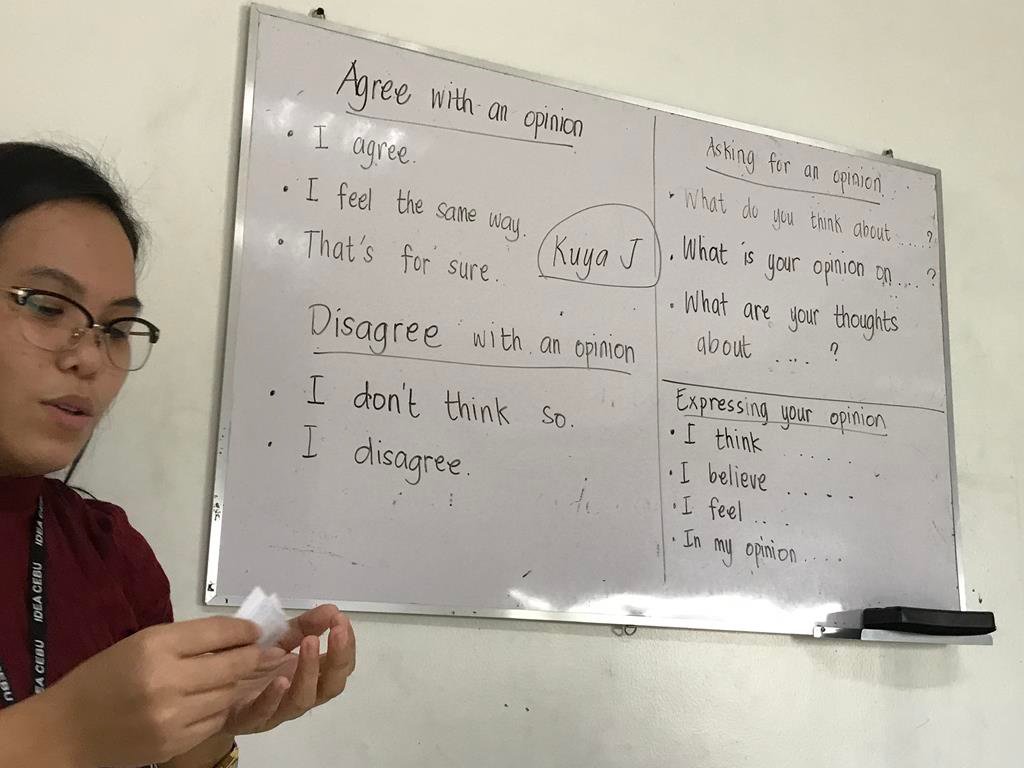 Agree with an opinion
• I agree.
• I feel the same way.
• That's for sure.
Kuya J
Disagree with an opinion
• I don't think so.
• I disagree.
Asking for an opinion
• What do you think about .....?
• What is your opinion on.... ?
• What are your thoughts
about .... ?
Expressing your opinion
• I think .....
• I believe ....
• I feel ...
• In my opinion ....
IDEA CEBU
IDEA CEBU
IDEA CEBU